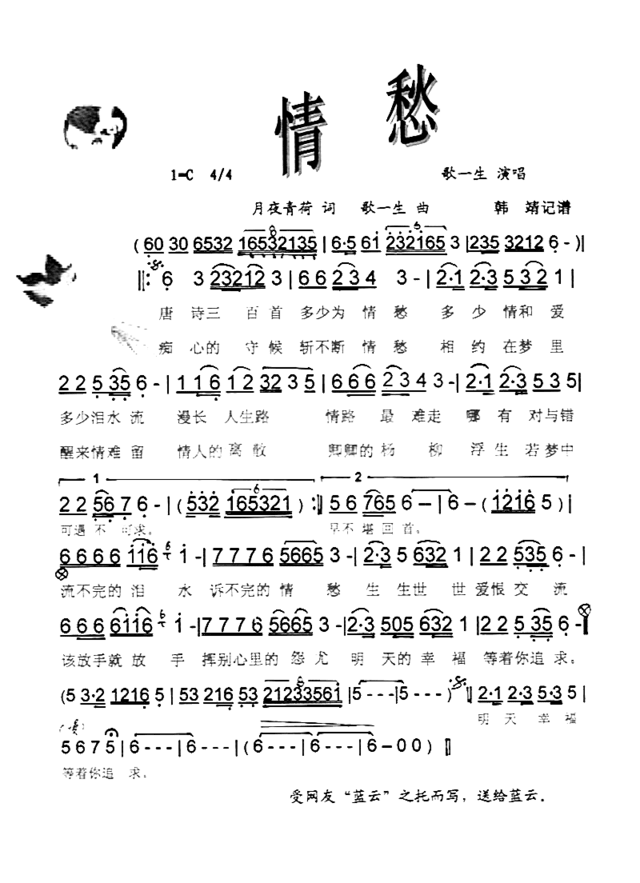 情愁
1=C 4/4 歌一生 演唱
月夜青荷 词 歌一生 曲 韩 靖记谱
(60 30 6532 16532135 | 6·5 61 232165 3 | 235 3212 6 -)|
‖: 6 3 23212 3 | 6 6 2 3 4 3 - | 2·1 2·3 5 3 2 1 |
唐 诗三 百 首 多少为 情 愁 多 少 情和 爱
痴 心的 守 候 斩不断 情 愁 相 约 在梦 里
2 2 5 35 6 - | 1 1 6 1 2 32 3 5 | 6 6 6 2 3 4 3 - | 2·1 2·3 5 3 5 |
多少泪水 流 漫长 人生路 情路 最 难走 哪 有 对与错
醒来情难 留 情人的 离散 卿卿的 杨 柳 浮 生 若 梦中
1 2
2 2 5 6 7 6 - | (5 32 165321) :‖ 5 6 765 6 - | 6 - (1 21 6 5) |
可遇 不 可求。 早不 堪 回 首。
6 6 6 6 116 1 - | 7 7 7 6 5665 3 - | 2·3 5 632 1 | 2 2 535 6 - |
流不完的 泪 水 诉不完的 情 愁 生 生世 世 爱恨 交 流
6 6 6 6 6116 1 - | 7 7 7 6 5665 3 - | 2·3 505 632 1 | 2 2 535 6 -‖
该放手就 放 手 挥别心里的 怨 尤 明 天的 幸 福 等着你追 求。
(5 3·2 1216 5 | 53 216 53 21233561 | 5 - - - | 5 - - -) | 2·1 2·3 5 3 5 |
明 天 幸 福
5 6 7 5 | 6 - - - | 6 - - - | (6 - - - | 6 - - - | 6 - 0 0 ) ‖
等着你追 求。
受网友“蓝云”之托而写，送给蓝云.